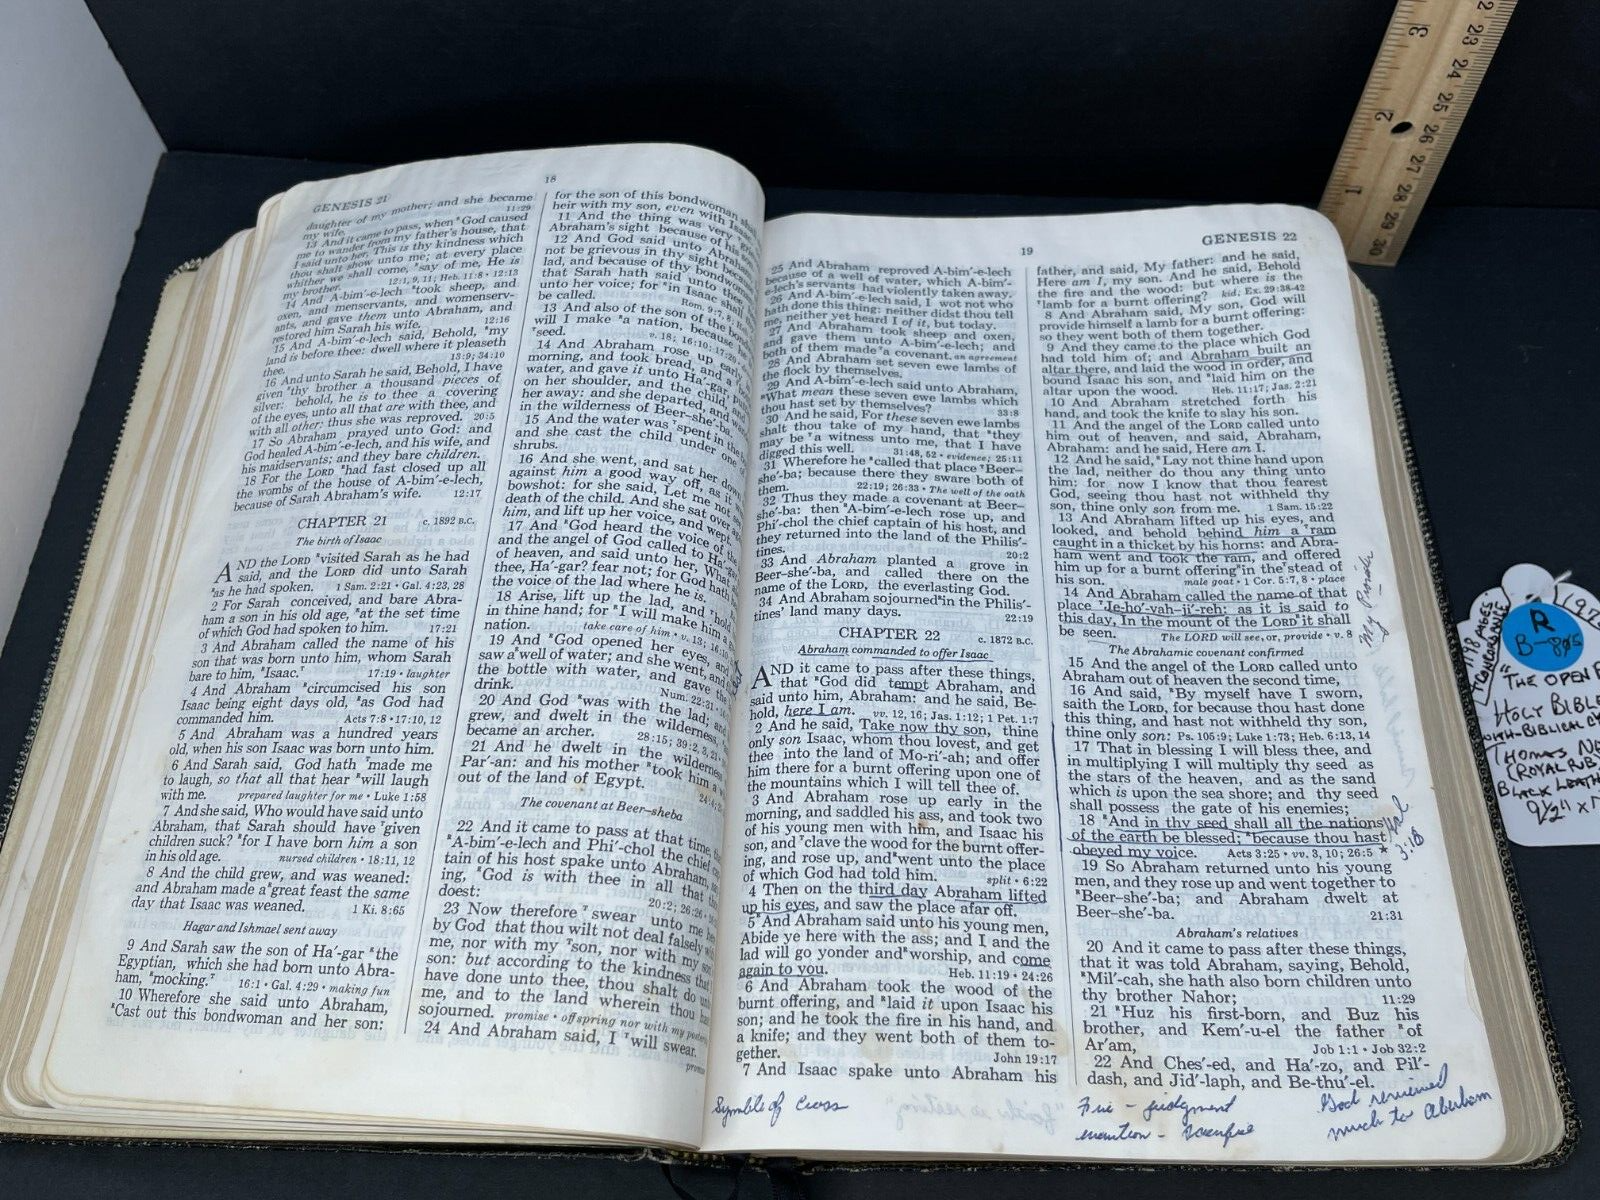 GENESIS 21
18
daughter of my mother; and she became
my wife. 11:29
13 And it came to pass, when ᴿGod caused
me to wander from my father's house, that
I said unto her, This is thy kindness which
thou shalt show unto me; at every place
whither we shall come, ᴿsay of me, He is
my brother. 12:1, 9, 11; Heb. 11:8 • 12:13
14 And A-bim′-e-lech ᴿtook sheep, and
oxen, and menservants, and womenserv-
ants, and gave them unto Abraham, and
restored him Sarah his wife. 12:16
15 And A-bim′-e-lech said, Behold, ᴿmy
land is before thee: dwell where it pleaseth
thee. 13:9; 34:10
16 And unto Sarah he said, Behold, I have
given ᴿthy brother a thousand pieces of
silver: behold, he is to thee a covering
of the eyes, unto all that are with thee, and
with all other: thus she was reproved. 20:5
17 So Abraham prayed unto God: and
God healed A-bim′-e-lech, and his wife, and
his maidservants; and they bare children.
18 For the LORD ᴿhad fast closed up all
the wombs of the house of A-bim′-e-lech,
because of Sarah Abraham's wife. 12:17
CHAPTER 21 c. 1892 B.C.
The birth of Isaac
AND the LORD ᴿvisited Sarah as he had
said, and the LORD did unto Sarah
ᴿas he had spoken. 1 Sam. 2:21 • Gal. 4:23, 28
2 For Sarah conceived, and bare Abra-
ham a son in his old age, ᴿat the set time
of which God had spoken to him. 17:21
3 And Abraham called the name of his
son that was born unto him, whom Sarah
bare to him, ᴿIsaac. 17:19 • laughter
4 And Abraham ᴿcircumcised his son
Isaac being eight days old, ᴿas God had
commanded him. Acts 7:8 • 17:10, 12
5 And Abraham was a hundred years
old, when his son Isaac was born unto him.
6 And Sarah said, God hath ᵀmade me
to laugh, so that all that hear ᴿwill laugh
with me. prepared laughter for me • Luke 1:58
7 And she said, Who would have said unto
Abraham, that Sarah should have ᵀgiven
children suck? ᴿfor I have born him a son
in his old age. nursed children • 18:11, 12
8 And the child grew, and was weaned:
and Abraham made a ᴿgreat feast the same
day that Isaac was weaned. 1 Ki. 8:65
Hagar and Ishmael sent away
9 And Sarah saw the son of Ha′-gar ᴿthe
Egyptian, which she had born unto Abra-
ham, ᴿmocking. 16:1 • Gal. 4:29 • making fun
10 Wherefore she said unto Abraham,
ᴿCast out this bondwoman and her son:
for the son of this bondwoman
heir with my son, even with
11 And the thing was very
Abraham's sight because of his
12 And God said unto Abraham
not be grievous in thy sight because
lad, and because of thy bondwoman
that Sarah hath said unto
unto her voice; for ᴿin Isaac
be called. Rom. 9:7, 8
13 And also of the son of the
will I make ᴿa nation, because
ᵀseed. v. 18; 16:10; 17:20
14 And Abraham rose up early
morning, and took bread, and a
water, and gave it unto Ha′-gar,
on her shoulder, and the child, and
her away: and she departed, and
in the wilderness of Beer-she′-ba.
15 And the water was ᵀspent in the
and she cast the child under one
shrubs.
16 And she went, and sat her down
against him a good way off, as it
bowshot: for she said, Let me not
death of the child. And she sat over
him, and lift up her voice, and wept
17 And ᴿGod heard the voice of the
and the angel of God called to Ha′-gar
of heaven, and said unto her, What
thee, Ha′-gar? fear not; for God hath
the voice of the lad where he is.
18 Arise, lift up the lad, and ᵀhold
in thine hand; for ᴿI will make him a
nation. take care of him • v. 13; 16:10
19 And ᴿGod opened her eyes, and
saw a well of water; and she went, and
the bottle with water, and gave the
drink. Num. 22:31
20 And God ᴿwas with the lad; and
grew, and dwelt in the wilderness,
became an archer. 28:15; 39:2, 3, 21
21 And he dwelt in the wilderness
Par′-an: and his mother ᴿtook him a
out of the land of Egypt. 24:4
The covenant at Beer-sheba
22 And it came to pass at that time,
ᴿA-bim′-e-lech and Phi′-chol the chief
tain of his host spake unto Abraham,
ing, ᴿGod is with thee in all that
doest: 20:2; 26:26
23 Now therefore ᵀswear unto me
by God that thou wilt not deal falsely
me, nor with my ᵀson, nor with my
son: but according to the kindness that
have done unto thee, thou shalt do
me, and to the land wherein thou
sojourned. promise • offspring nor with my
24 And Abraham said, I ᵀwill swear.
19
GENESIS 22
25 And Abraham reproved A-bim′-e-lech
because of a well of water, which A-bim′-
e-lech's servants had violently taken away.
26 And A-bim′-e-lech said, I wot not who
hath done this thing: neither didst thou tell
me, neither yet heard I of it, but today.
27 And Abraham took sheep and oxen,
and gave them unto A-bim′-e-lech; and
both of them made ᵀa covenant. an agreement
28 And Abraham set seven ewe lambs of
the flock by themselves.
29 And A-bim′-e-lech said unto Abraham,
ᴿWhat mean these seven ewe lambs which
thou hast set by themselves? 33:8
30 And he said, For these seven ewe lambs
shalt thou take of my hand, that ᴿthey
may be ᵀa witness unto me, that I have
digged this well. 31:48, 52 • evidence; 25:11
31 Wherefore he ᴿcalled that place ᵀBeer-
she′-ba; because there they sware both of
them. 22:19; 26:33 • The well of the oath
32 Thus they made a covenant at Beer-
she′-ba: then ᴿA-bim′-e-lech rose up, and
Phi′-chol the chief captain of his host, and
they returned into the land of the Philis′-
tines. 20:2
33 And Abraham planted a grove in
Beer-she′-ba, and called there on the
name of the LORD, the everlasting God.
34 And Abraham sojourned ᴿin the Philis′-
tines' land many days. 22:19
CHAPTER 22 c. 1872 B.C.
Abraham commanded to offer Isaac
AND it came to pass after these things,
that ᴿGod did tempt Abraham, and
said unto him, Abraham: and he said, Be-
hold, here I am. vv. 12, 16; Jas. 1:12; 1 Pet. 1:7
2 And he said, Take now thy son, thine
only son Isaac, whom thou lovest, and get
thee into the land of Mo-ri′-ah; and offer
him there for a burnt offering upon one of
the mountains which I will tell thee of.
3 And Abraham rose up early in the
morning, and saddled his ass, and took two
of his young men with him, and Isaac his
son, and ᵀclave the wood for the burnt offer-
ing, and rose up, and ᴿwent unto the place
of which God had told him. split • 6:22
4 Then on the third day Abraham lifted
up his eyes, and saw the place afar off.
5 And Abraham said unto his young men,
Abide ye here with the ass; and I and the
lad will go yonder and ᴿworship, and come
again to you. Heb. 11:19 • 24:26
6 And Abraham took the wood of the
burnt offering, and ᴿlaid it upon Isaac his
son; and he took the fire in his hand, and
a knife; and they went both of them to-
gether. John 19:17
7 And Isaac spake unto Abraham his
father, and said, My father: and he said,
Here am I, my son. And he said, Behold
the fire and the wood: but where is the
ᵀlamb for a burnt offering? kid; Ex. 29:38-42
8 And Abraham said, My son, God will
provide himself a lamb for a burnt offering:
so they went both of them together.
9 And they came to the place which God
had told him of; and Abraham built an
altar there, and laid the wood in order, and
bound Isaac his son, and ᴿlaid him on the
altar upon the wood. Heb. 11:17; Jas. 2:21
10 And Abraham stretched forth his
hand, and took the knife to slay his son.
11 And the angel of the LORD called unto
him out of heaven, and said, Abraham,
Abraham: and he said, Here am I.
12 And he said, ᴿLay not thine hand upon
the lad, neither do thou any thing unto
him: for now I know that thou fearest
God, seeing thou hast not withheld thy
son, thine only son from me. 1 Sam. 15:22
13 And Abraham lifted up his eyes, and
looked, and behold behind him a ᵀram
caught in a thicket by his horns: and Abra-
ham went and took the ram, and offered
him up for a burnt offering ᴿin the ᵀstead of
his son. male goat • 1 Cor. 5:7, 8 • place
14 And Abraham called the name of that
place ᵀJe-ho′-vah-ji′-reh: as it is said to
this day, In the mount of the LORD ᴿit shall
be seen. The LORD will see, or, provide • v. 8
The Abrahamic covenant confirmed
15 And the angel of the LORD called unto
Abraham out of heaven the second time,
16 And said, ᴿBy myself have I sworn,
saith the LORD, for because thou hast done
this thing, and hast not withheld thy son,
thine only son: Ps. 105:9; Luke 1:73; Heb. 6:13, 14
17 That in blessing I will bless thee, and
in multiplying I will multiply thy seed as
the stars of the heaven, and as the sand
which is upon the sea shore; and thy seed
shall possess the gate of his enemies;
18 ᴿAnd in thy seed shall all the nations
of the earth be blessed; ᴿbecause thou hast
obeyed my voice. Acts 3:25 • vv. 3, 10; 26:5
19 So Abraham returned unto his young
men, and they rose up and went together to
ᴿBeer-she′-ba; and Abraham dwelt at
Beer-she′-ba. 21:31
Abraham's relatives
20 And it came to pass after these things,
that it was told Abraham, saying, Behold,
ᴿMil′-cah, she hath also born children unto
thy brother Nahor; 11:29
21 ᴿHuz his first-born, and Buz his
brother, and Kem′-u-el the father ᴿof
Ar′am, Job 1:1 • Job 32:2
22 And Ches′-ed, and Ha′-zo, and Pil′-
dash, and Jid′-laph, and Be-thu′-el.
My
Gal
3:18
Symble of Cross
Fire - judgment
God
much to Aberham
3
2
1
22
23
24
25
26
27
28
29
30
1198 PAGES
CONCORDANCE
R
B-805
"THE OPEN
HOLY BIBLE
WITH-BIBLICAL
THOMAS
(ROYAL PUB.
BLACK
9½" X